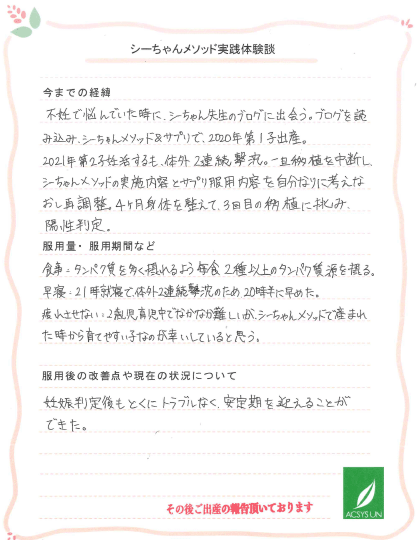 シーちゃんメソッド実践体験談
今までの経緯
不妊で悩んでいた時に、シーちゃん先生のブログに出会う。ブログを読
み込み、シーちゃんメソッド&サプリで、2020年第1子出産。
2021年第2子妊活するも、体外2連続撃沈。一旦納植を中断し、
シーちゃんメソッドの実施内容とサプリ服用内容を自分なりに考えな
おし再調整。4ヶ月身体を整えて、3回目の納植に挑み、
陽性判定。
服用量・服用期間など
食事:タンパク質を多く摂れるよう毎食2種以上のタンパク質源を摂る。
早寝:21時就寝で、体外2連続撃沈のため20時半に早めた。
疲れさせない:2歳児育児中でなかなか難しいが、シーちゃんメソッドで産まれ
た時から育てやすい子なのが幸いしていると思う。
服用後の改善点や現在の状況について
妊娠判定後もとくにトラブルなく、安定期を迎えることが
できた。
その後ご出産の報告頂いております
ACSYSUN